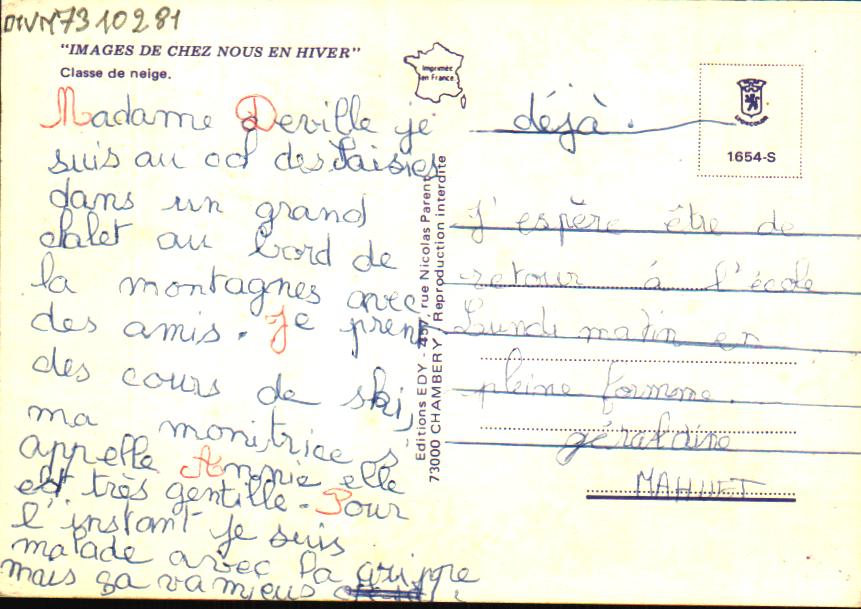 DIVN7310281
"IMAGES DE CHEZ NOUS EN HIVER"
Classe de neige.
Imprimée
en France
1654-S
Madame Deville je
suis au col des Saisies
dans un grand
chalet au bord de
la montagnes avec
des amis. Je prent
des cours de ski,
ma monitrice s'
appelle Annie elle
est très gentille. Pour
l'instant je suis
malade avec la grippe
mais sa va mieus
Editions EDY - 457, rue Nicolas Parent
73000 CHAMBERY - Reproduction interdite
déjà.
J'espère être de
retour à l'école
Lundi matin en
pleine formme.
géraldine
MAHUET